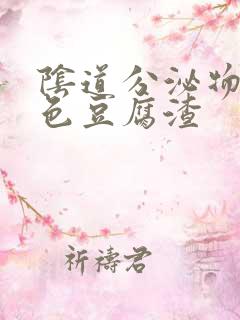 陰道分泌物
色豆腐渣
祈禱君